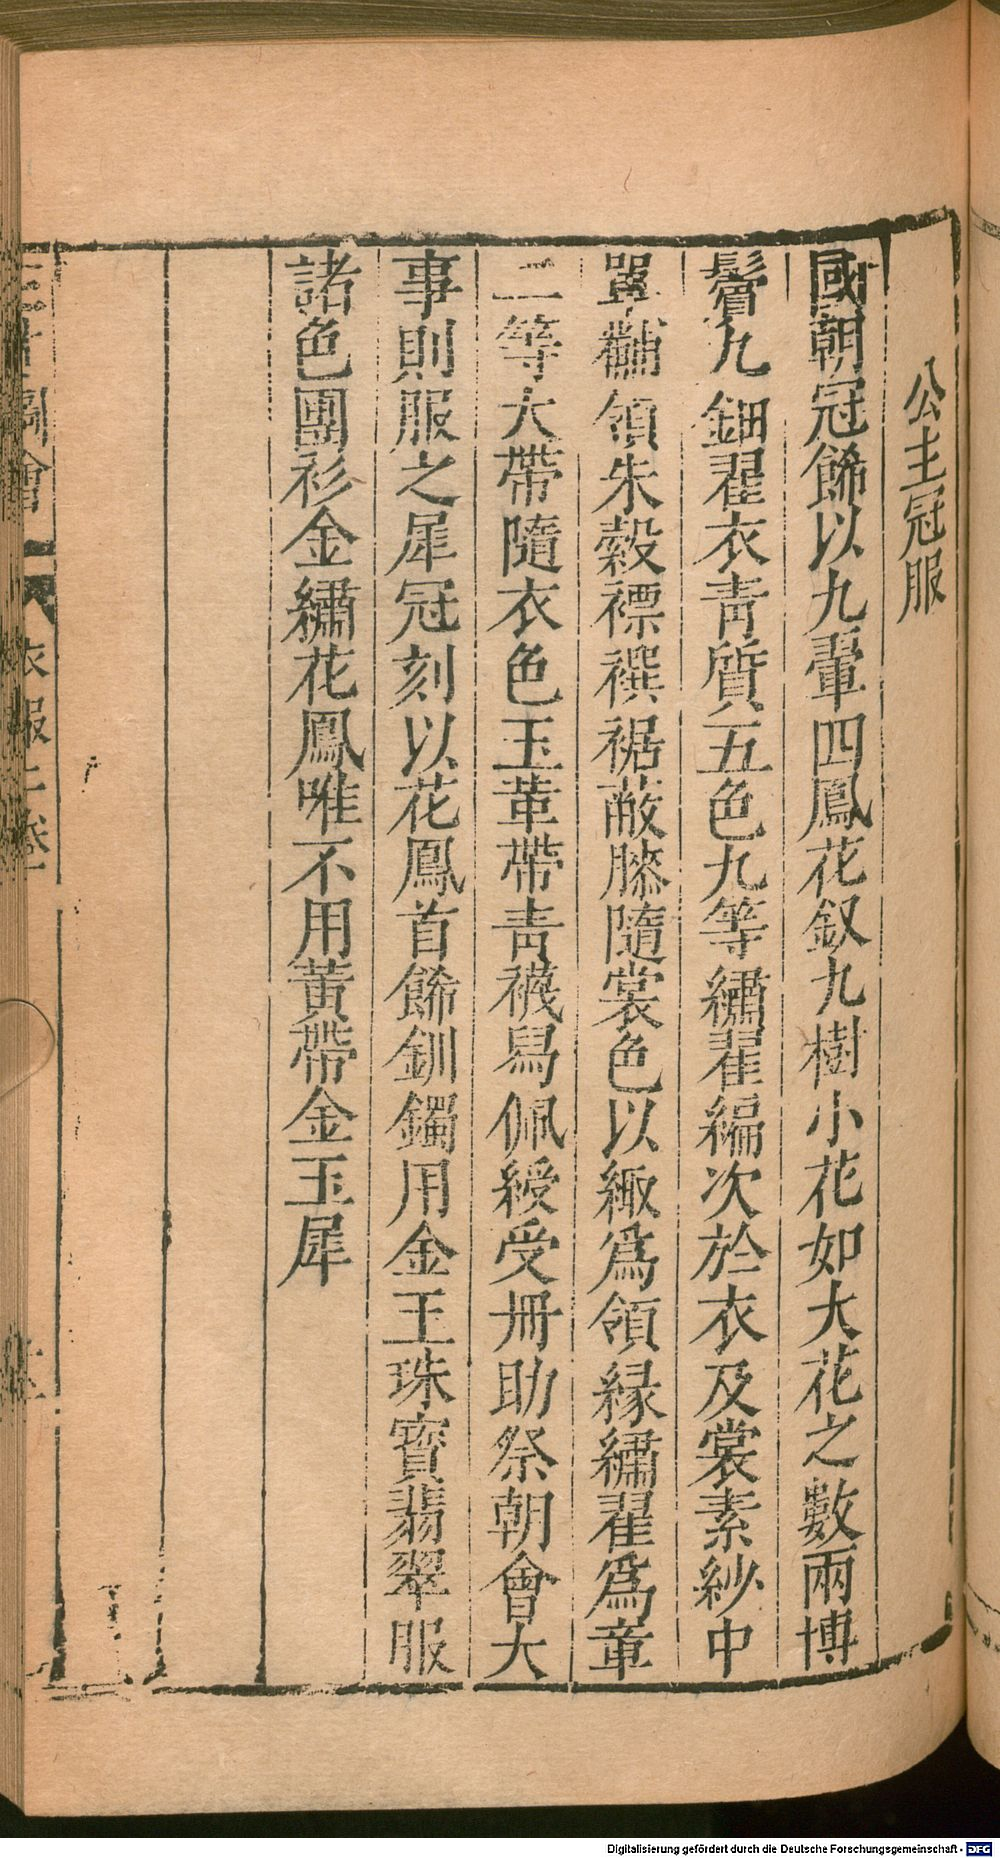 公主冠服
國朝冠餙以九翬四鳳花釵九樹小花如大花之數兩博
鬢九鈿翟衣青質五色九等繡翟編次於衣及裳素紗中
單黼領朱縠褾襈裾蔽膝隨裳色以緅爲領緣繡翟爲章
二等大帶隨衣色玉革帶青襪舄佩綬受冊助祭朝會大
事則服之犀冠刻以花鳳首餙釧鐲用金玉珠寶翡翠服
諸色團衫金繡花鳳唯不用黃帶金玉犀
三才圖會
衣服二卷
Digitalisierung gefördert durch die Deutsche Forschungsgemeinschaft - DFG